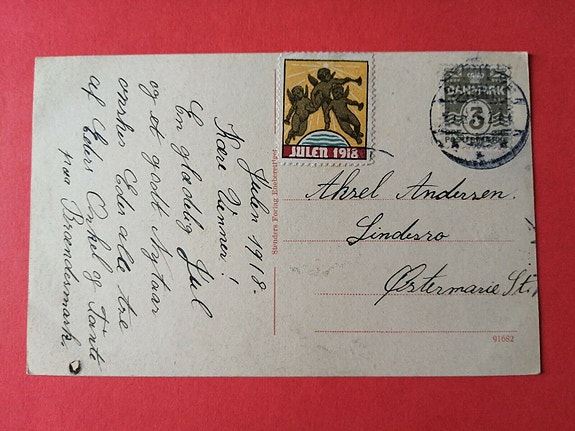 Julen 1918.
Kære Venner!
En glædelig Jul
og et godt Nytaar
ønskes Eder alle tre
af Eders Onkel og Tante
paa Brændesmark.
Stenders Forlag Eneberettiget
JULEN 1918
DANMARK
3
Aksel Andersen.
Lindesro
Østermarie St.
91682